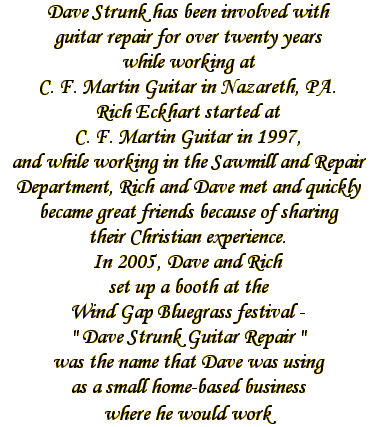 Dave Strunk has been involved with
guitar repair for over twenty years
while working at
C. F. Martin Guitar in Nazareth, PA.
Rich Eckhart started at
C. F. Martin Guitar in 1997,
and while working in the Sawmill and Repair
Department, Rich and Dave met and quickly
became great friends because of sharing
their Christian experience.
In 2005, Dave and Rich
set up a booth at the
Wind Gap Bluegrass festival -
" Dave Strunk Guitar Repair "
was the name that Dave was using
as a small home-based business
where he would work